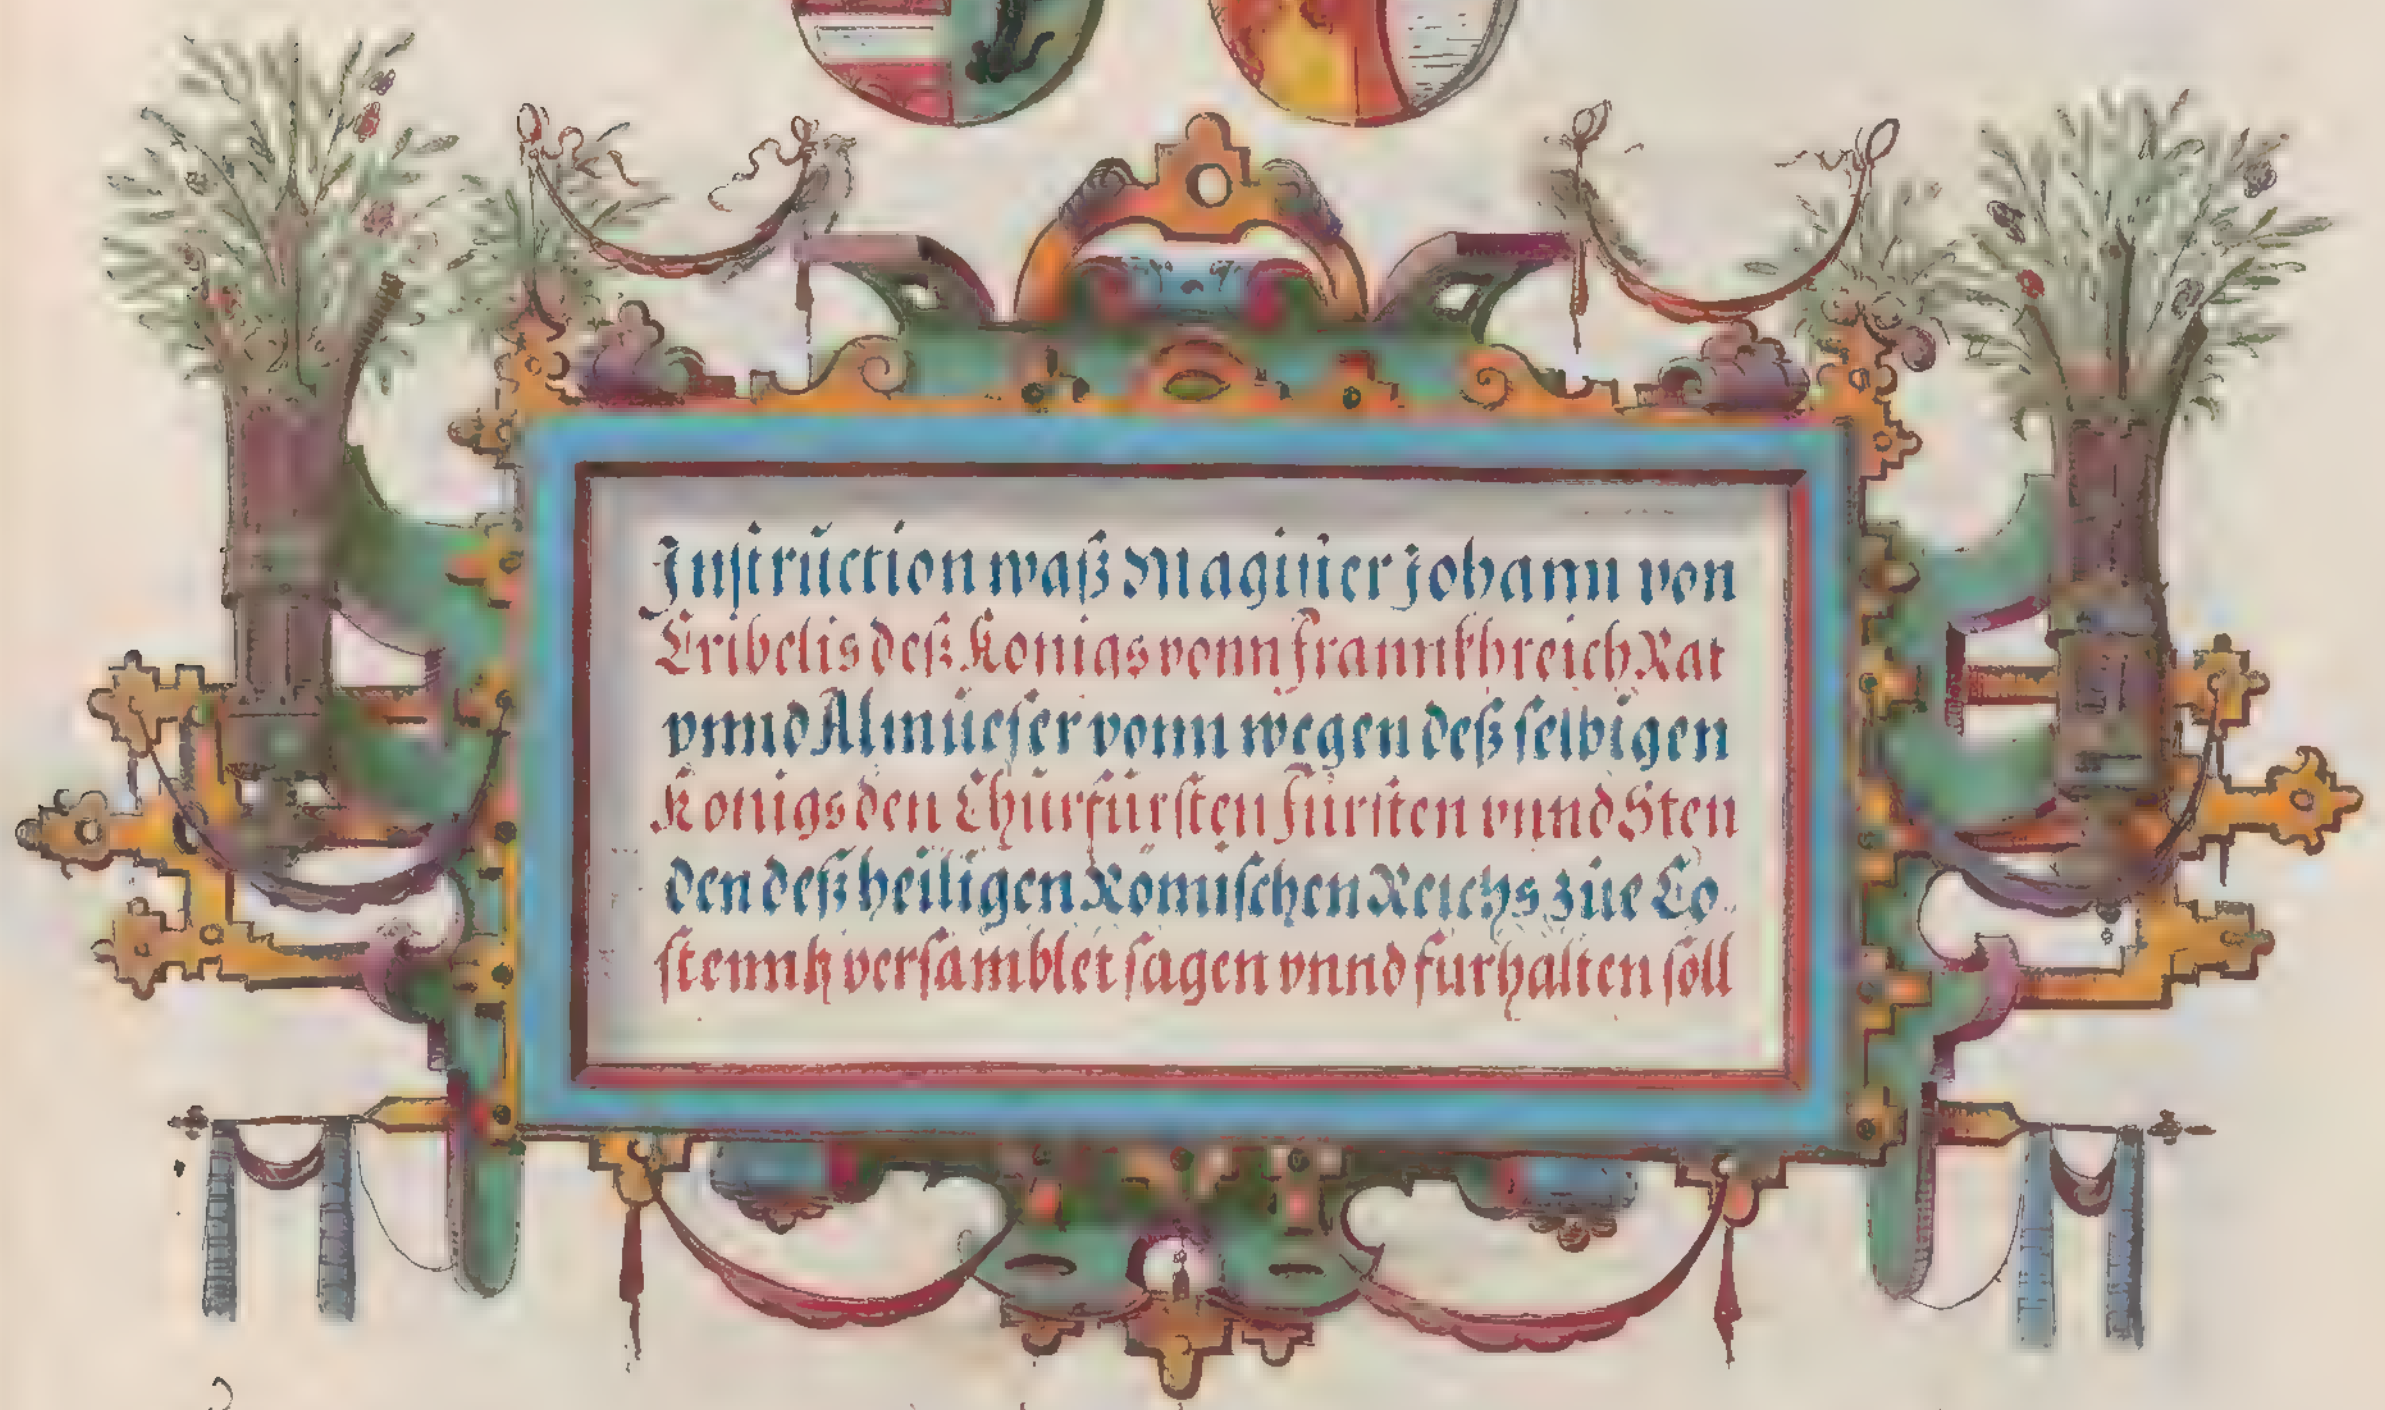 Instrŭction waß Magister Johann von
Tribelis deß Konigs vonn Frannkhreich Rat
vnnd Almŭeser vonn wegen deß selbigen
Konigs den Chŭrfürsten Fürsten vnnd Sten
den deß heiligen Römischen Reichs zŭe Co
stenntz versamblet sagen vnnd fürhalten söll